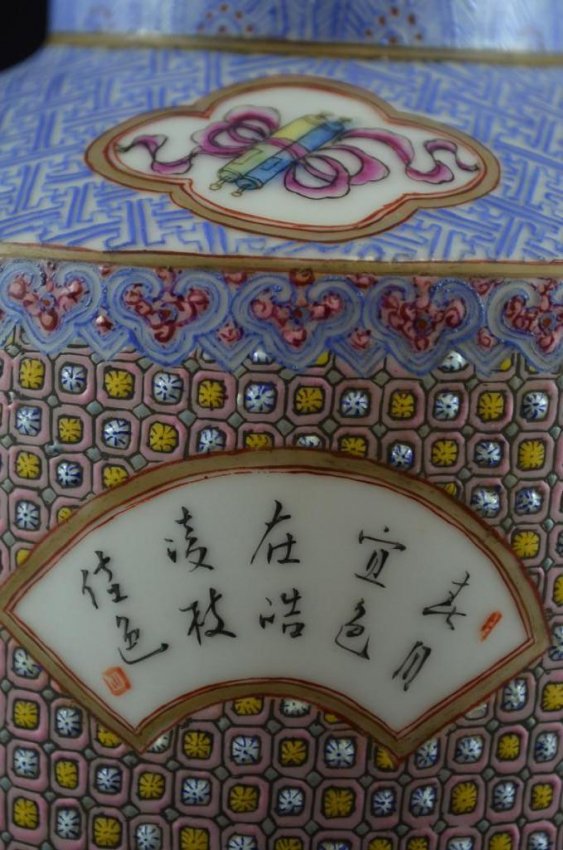 春月
宜色
在浩
凌枝
佳色